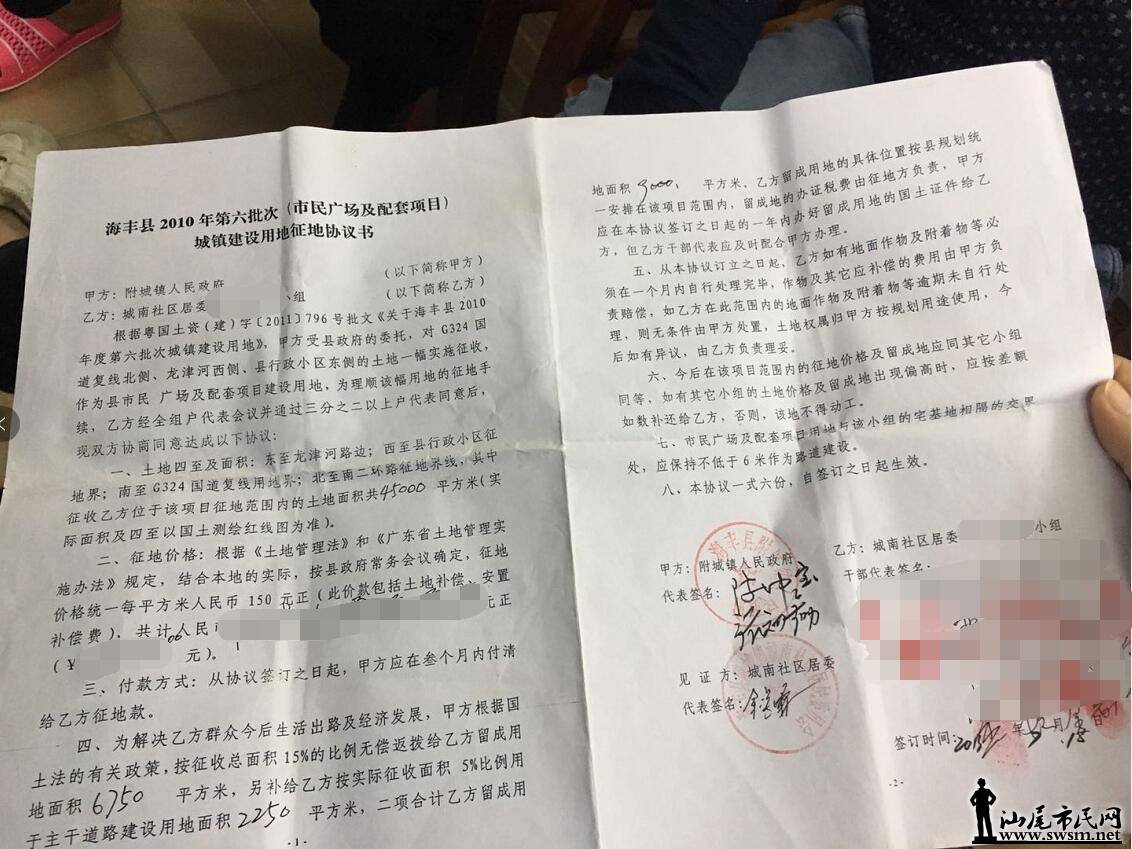 海丰县2010年第六批次(市民广场及配套项目)
城镇建设用地征地协议书
甲方：附城镇人民政府 (以下简称甲方)
乙方：城南社区居委 小组 (以下简称乙方)
根据粤国土资(建)字〔2011〕796号批文《关于海丰县2010
年度第六批次城镇建设用地》，甲方受县政府的委托，对G324国
道复线北侧、龙津河西侧、县行政小区东侧的土地一幅实施征收，
作为县市民 广场及配套项目建设用地，为理顺该幅用地的征地手
续，乙方经全组户代表会议并通过三分之二以上户代表同意后，
现双方协商同意达成以下协议：
一、土地四至及面积：东至龙津河路边；西至县行政小区征
地界；南至G324国道复线用地界；北至南二环路征地界线，其中
征收乙方位于该项目征地范围内的土地面积共45000 平方米(实
际面积及四至以国土测绘红线图为准)。
二、征地价格：根据《土地管理法》和《广东省土地管理实
施办法》规定，结合本地的实际，按县政府常务会议确定，征地
价格统一每平方米人民币 150 元正(此价款包括土地补偿、安置
补偿费)，共计人民币 元正
(￥ 元)。
三、付款方式：从协议签订之日起，甲方应在叁个月内付清
给乙方征地款。
四、为解决乙方群众今后生活出路及经济发展，甲方根据国
土法的有关政策，按征收总面积15%的比例无偿返拨给乙方留成用
地面积 6750 平方米，另补给乙方按实际征收面积 5%比例用
于主干道路建设用地面积 2250 平方米，二项合计乙方留成用
-1-
地面积 9000， 平方米。乙方留成用地的具体位置按县规划统
一安排在该项目范围内，留成地的办证税费由征地方负责，甲方
应在本协议签订之日起的一年内办好留成用地的国土证件给乙
方，但乙方干部代表应及时配合甲方办理。
五、从本协议订立之日起，乙方如有地面作物及附着物等必
须在一个月内自行处理完毕，作物及其它应补偿的费用由甲方负
责赔偿，如乙方在此范围内的地面作物及附着物等逾期未自行处
理，则无条件由甲方处置，土地权属归甲方按规划用途使用，今
后如有异议，由乙方负责理妥。
六、今后在该项目范围内的征地价格及留成地应同其它小组
同等，如有其它小组的土地价格及留成地出现偏高时，应按差额
如数补还给乙方，否则，该地不得动工。
七、市民广场及配套项目用地与该小组的宅基地相隔的交界
处，应保持不低于6米作为路道建设。
八、本协议一式六份，自签订之日起生效。
甲方：附城镇人民政府
代表签名：
乙方：城南社区居委 小组
干部代表签名：
见 证 方：城南社区居委
代表签名：
签订时间： 年 月
-2-
汕尾市民网
www.swsm.net